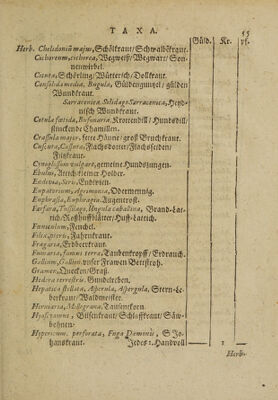 TAXA. 55
Güld. Kr. pf.
Herb. Chelidonii majus, Schölkraut/ Schwalbēkraut.
Cichoreum, cichorea, Wegweiß/ Wegwart/ Son-
nenwirbel.
Cicuta, Schörling/ Wütterich/ Dollkraut.
Consolida media, Bugula, Güldengünzel/ gülden
Wundkraut.
Sarracenica, Solidago Sarracenica, Heyd-
nisch Wundkraut.
Cotula fœtida, Bufonaria, Krottendill/ Hundsdill/
stinckende Chamillen.
Crassula major, fette Henne/ groß Bruchkraut.
Cuscuta, Cassuta, Flachsdotter/ Flachsseiden/
Filtzkraut.
Cynoglossum vulgare, gemeine Hundszungen.
Ebulus, Attich/ kleiner Holder.
Endivia, Seris, Endivien.
Eupatorium, Agrimonia, Odermennig.
Euphrasia, Euphragia, Augentrost.
Farfara, Tussilago, Ungula caballina, Brand-Lat-
tich/ Roßhuffblätter/ Huff-Lattich.
Fœniculum, Fenchel.
Filix, pteris, Fahrenkraut.
Fragaria, Erdbeerkraut.
Fumaria, fumus terræ, Taubenkropff/ Erdrauch.
Gallium, Gallion, unser Frawen Bettstroh.
Gramen, Quecken/ Graß.
Hedera terrestris, Gundelreben.
Hepatica stellata, Asperula, Aspergula, Stern-Le-
berkraut/ Waldmeister.
Herniaria, Millegrana, Tausendkorn.
Hyoscyamus, Bilsenkraut/ Schlaffkraut/ Säw-
bohnen.
Hypericum, perforata, Fuga Dæmonis, S. Jo-
hanskraut. Jedes 1. Handvoll 1
Herb.